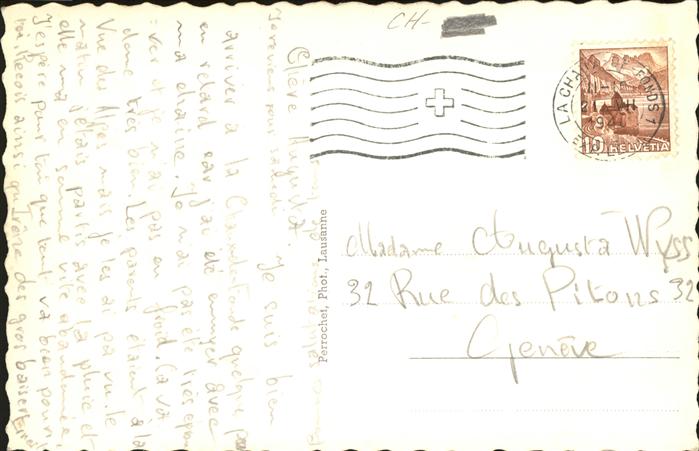 CH-
Chère Augusta. Je suis bien
arriver à la Chaux-de-Fonds quelque
en retard car j'ai été ennuyer avec
ma chaîne. Je n'ai pas été très
ver et je n'ai pas eu froid. Ca va
donc très bien. Les parents étaient à la
Vue des Alpes mais je les ai pas vu. le
matin j'étais partis avec la pluie et
elle m'a en somme vite abandonnée,
J'espère pour toi que tout va bien
toi. Reçois ainsi qu'Irène des gros baisers
Je reviens pour samedi
LA CHAUX-DE-FONDS 1
10 HELVETIA
Perrochet, Phot., Lausanne
Madame Augusta Wyss
32 Rue des Pitons 32
Genève